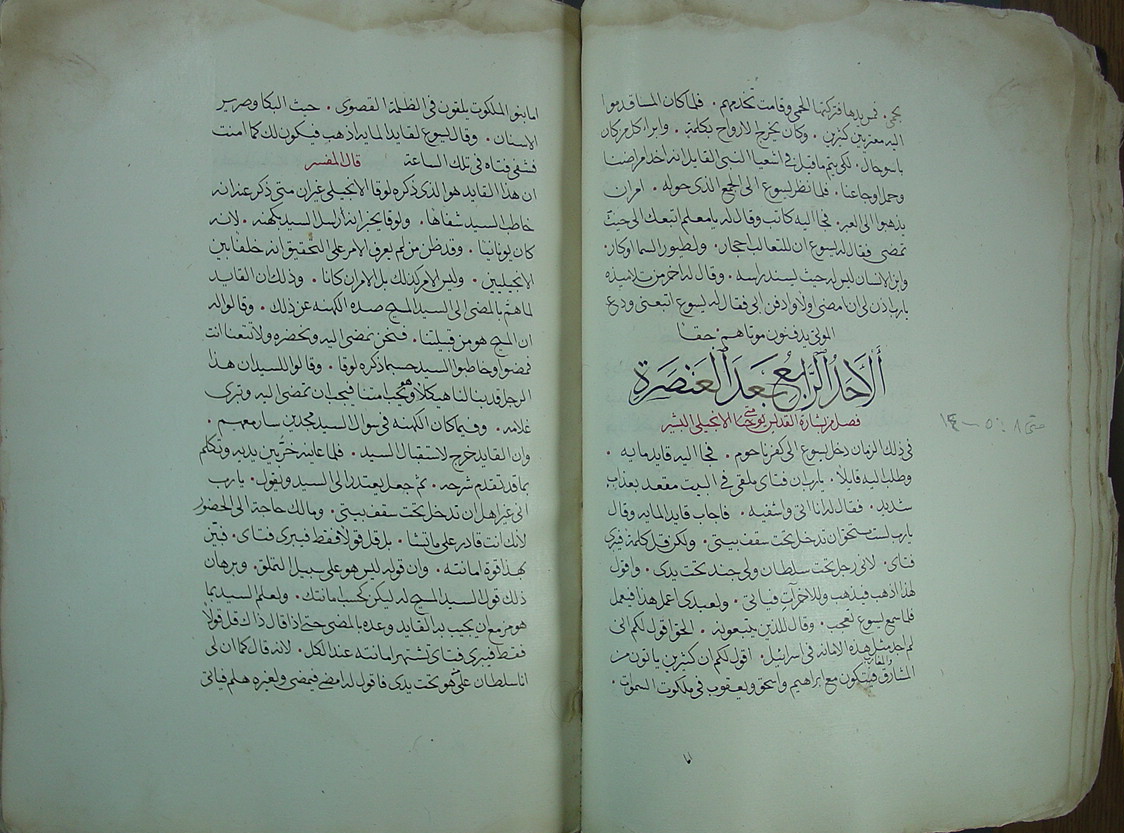 يحمى. فمس يدها فتركتها الحمى وقامت تخدمهم. فلما كان المسا قدموا
اليه معترين كثيرين. وكان يخرج الارواح بكلمة. وابرا كل من كان
باسو حال. لكي يتم ما قيل في اشعيا النبي القايل انه اخذ امراضنا
وحمل اوجاعنا. فلما نظر يسوع الى الجمع الذي حوله. امر ان
يذهبوا الى العبر. فجا اليه كاتب وقال له يا معلم اتبعك الى حيث
تمضي فقال له يسوع ان للثعالب احجار. ولطيور السما اوكار.
وابن الانسان ليس له حيث يسند راسه. وقال له اخر من تلاميذه
يا رب اذن لي ان امضي اولا وادفن ابي فقال له يسوع اتبعني ودع
الموتى يدفنون موتاهم حقا
ألأحد الرابع بعد العنصرة
فصل من بشارة القديس يوحنا متى الانجيلي البشير
متى ٨: ٥ - ١٤
في ذلك الزمان دخل يسوع الى كفرناحوم. فجا اليه قايد مايه.
وطلب اليه قايلا. يا رب ان فتاي ملقى في البيت مقعد بعذاب
شديد. فقال له انا اتي واشفيه. فاجاب قايد المايه وقال
يا رب لست مستحق ان تدخل تحت سقف بيتي. ولكن قل كلمة فيبرى
فتاي. لاني رجل تحت سلطان ولي جند تحت يدي. واقول
لهذا اذهب فيذهب وللاخر آت فياتي. ولعبدي اعمل هذا فيعمل
فلما سمع يسوع تعجب. وقال للذين يتبعونه. الحق اقول لكم اني
لم اجد مثل هذه الامانه في اسرائيل. اقول لكم ان كثيرين ياتون من
المشارق والمغارب فيتكون مع ابراهيم واسحق ويعقوب في ملكوت السموات.
اما بنو الملكوت يلقون في الظلمة القصوى. حيث البكا وصرير
الاسنان. وقال يسوع لقايد المايه اذهب فيكون لك كما امنت
فشفي فتاه في تلك الساعة قال المفسر
ان هذا القايد هو الذي ذكره لوقا الانجيلي غير ان متى ذكر عنه انه
خاطب السيد شفاها. ولوقا يخبر انه ارسل الى السيد بكهنه. لانه
كان يونانيا. وقد ظن من لم يعرف الامر على التحقيق انه خلف بين
الانجيليين. وليس الامر كذلك بل الامران كانا. وذلك ان القايد
لما هم بالمضي الى السيد المسيح صده الكهنه عن ذلك. وقالوا له
ان المسيح هو من قبيلتنا. فنحن نمضي اليه ونحضره ولا تتعنا انت
فمضوا وخاطبوا السيد حسبما ذكره لوقا. وقالوا للسيد ان هذا
الرجل قد بنا لنا هيكلا وهو يحب امتنا فيجب ان تمضي اليه وتبري
غلامه. وفيما كان الكهنه في سوال السيد مجدين سار معهم.
وان القايد خرج لاستقبال السيد. فلما عاينه خر بين يديه وتكلم
بما قد تقدم شرحه. ثم جعل يعتذر الى السيد ويقول. يا رب
اني غير اهل ان تدخل تحت سقف بيتي. وما لك حاجة الى الحضور
لانك انت قادر على ما تشا. بل قل قولا فقط فيبرى فتاي. فبين
بهذا قوة امانته. وان قوله ليس هو على سبيل التملق. وبرهان
ذلك قول السيد المسيح له ليكن بحسب امانتك. ولعلم السيد بما
هو مزمع ان يجيب به القايد وعده بالمضي حتى اذا قال ذاك قل قولا
فقط فيبرى فتاي تشتهر امانته عند الكل. لانه قال كما ان لي
انا سلطان على من هو تحت يدي فاقول لهذا امض فيمضي ولغيره هلم فياتي